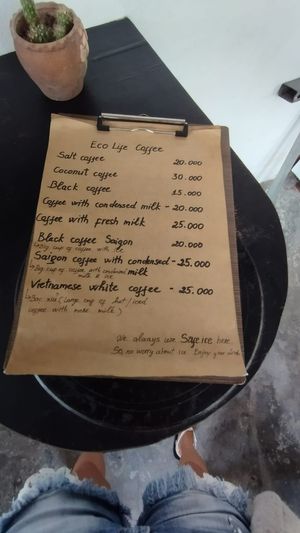 Eco Life Coffee
Salt coffee 20.000
Coconut coffee 30.000
Black coffee 15.000
Coffee with condensed milk - 20.000
Coffee with fresh milk 25.000
Black coffee Saigon 20.000
↳ Big cup of coffee with ice
Saigon coffee with condensed milk - 25.000
↳ Big cup of coffee with condensed milk & ice
Vietnamese white coffee - 25.000
(Large cup of hot/iced
coffee with more milk)
We always use Safe ice here
So, no worry about ice. Enjoy your drink